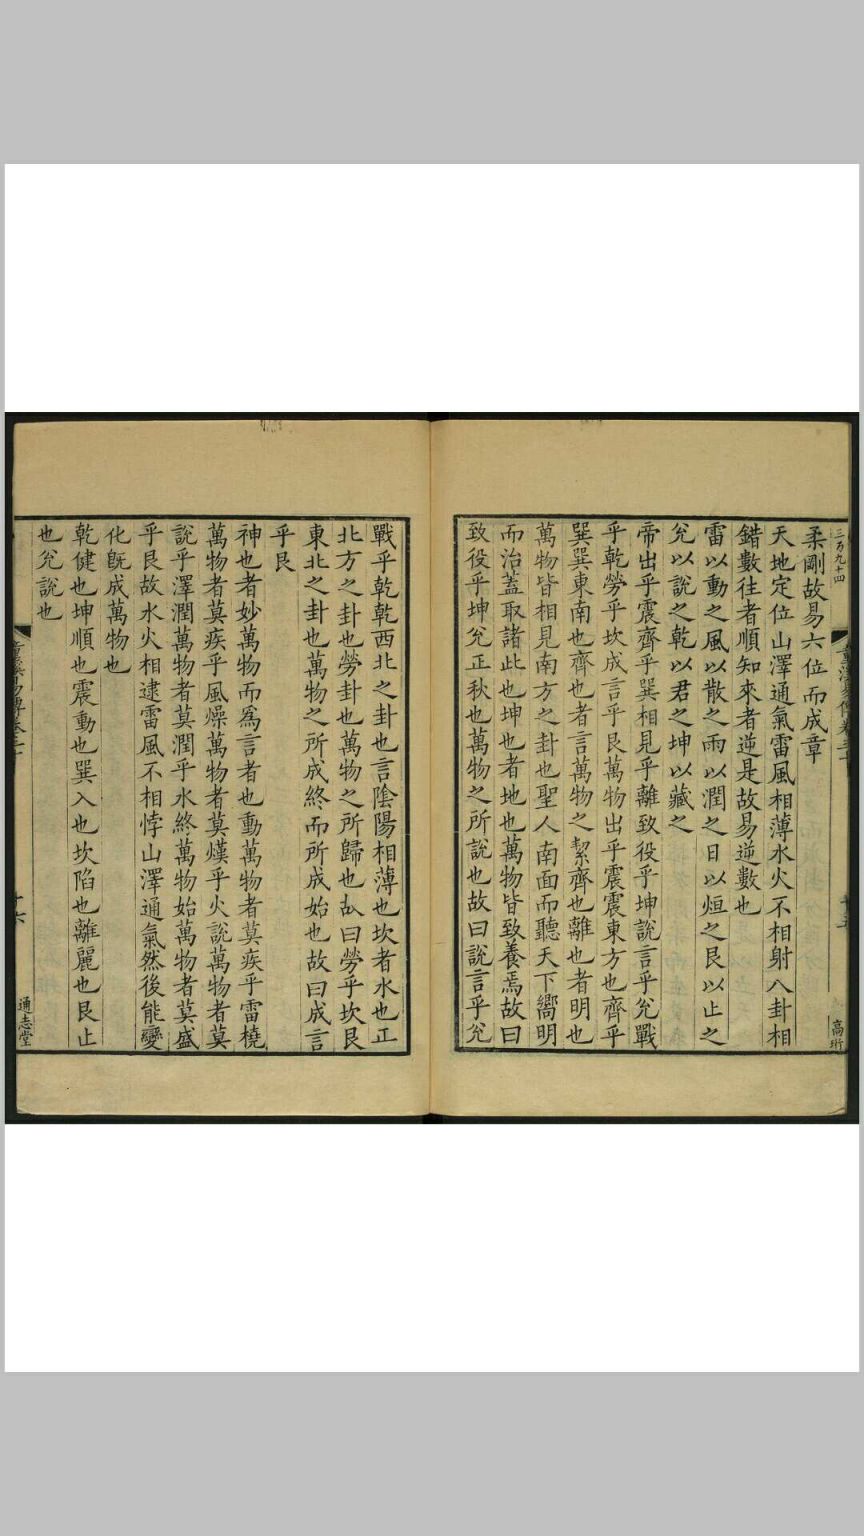 三百九十四
高珩
柔剛故易六位而成章
天地定位山澤通氣雷風相薄水火不相射八卦相
錯數往者順知來者逆是故易逆數也
雷以動之風以散之雨以潤之日以烜之艮以止之
兊以說之乾以君之坤以藏之
帝出乎震齊乎巽相見乎離致役乎坤說言乎兊戰
乎乾勞乎坎成言乎艮萬物出乎震震東方也齊乎
巽巽東南也齊也者言萬物之絜齊也離也者明也
萬物皆相見南方之卦也聖人南面而聽天下嚮明
而治蓋取諸此也坤也者地也萬物皆致養焉故曰
致役乎坤兊正秋也萬物之所說也故曰說言乎兊
戰乎乾乾西北之卦也言陰陽相薄也坎者水也正
北方之卦也勞卦也萬物之所歸也故曰勞乎坎艮
東北之卦也萬物之所成終而所成始也故曰成言
乎艮
神也者妙萬物而爲言者也動萬物者莫疾乎雷橈
萬物者莫疾乎風燥萬物者莫熯乎火說萬物者莫
說乎澤潤萬物者莫潤乎水終萬物始萬物者莫盛
乎艮故水火相逮雷風不相悖山澤通氣然後能變
化旣成萬物也
乾健也坤順也震動也巽入也坎陷也離麗也艮止
也兊說也
十六
通志堂